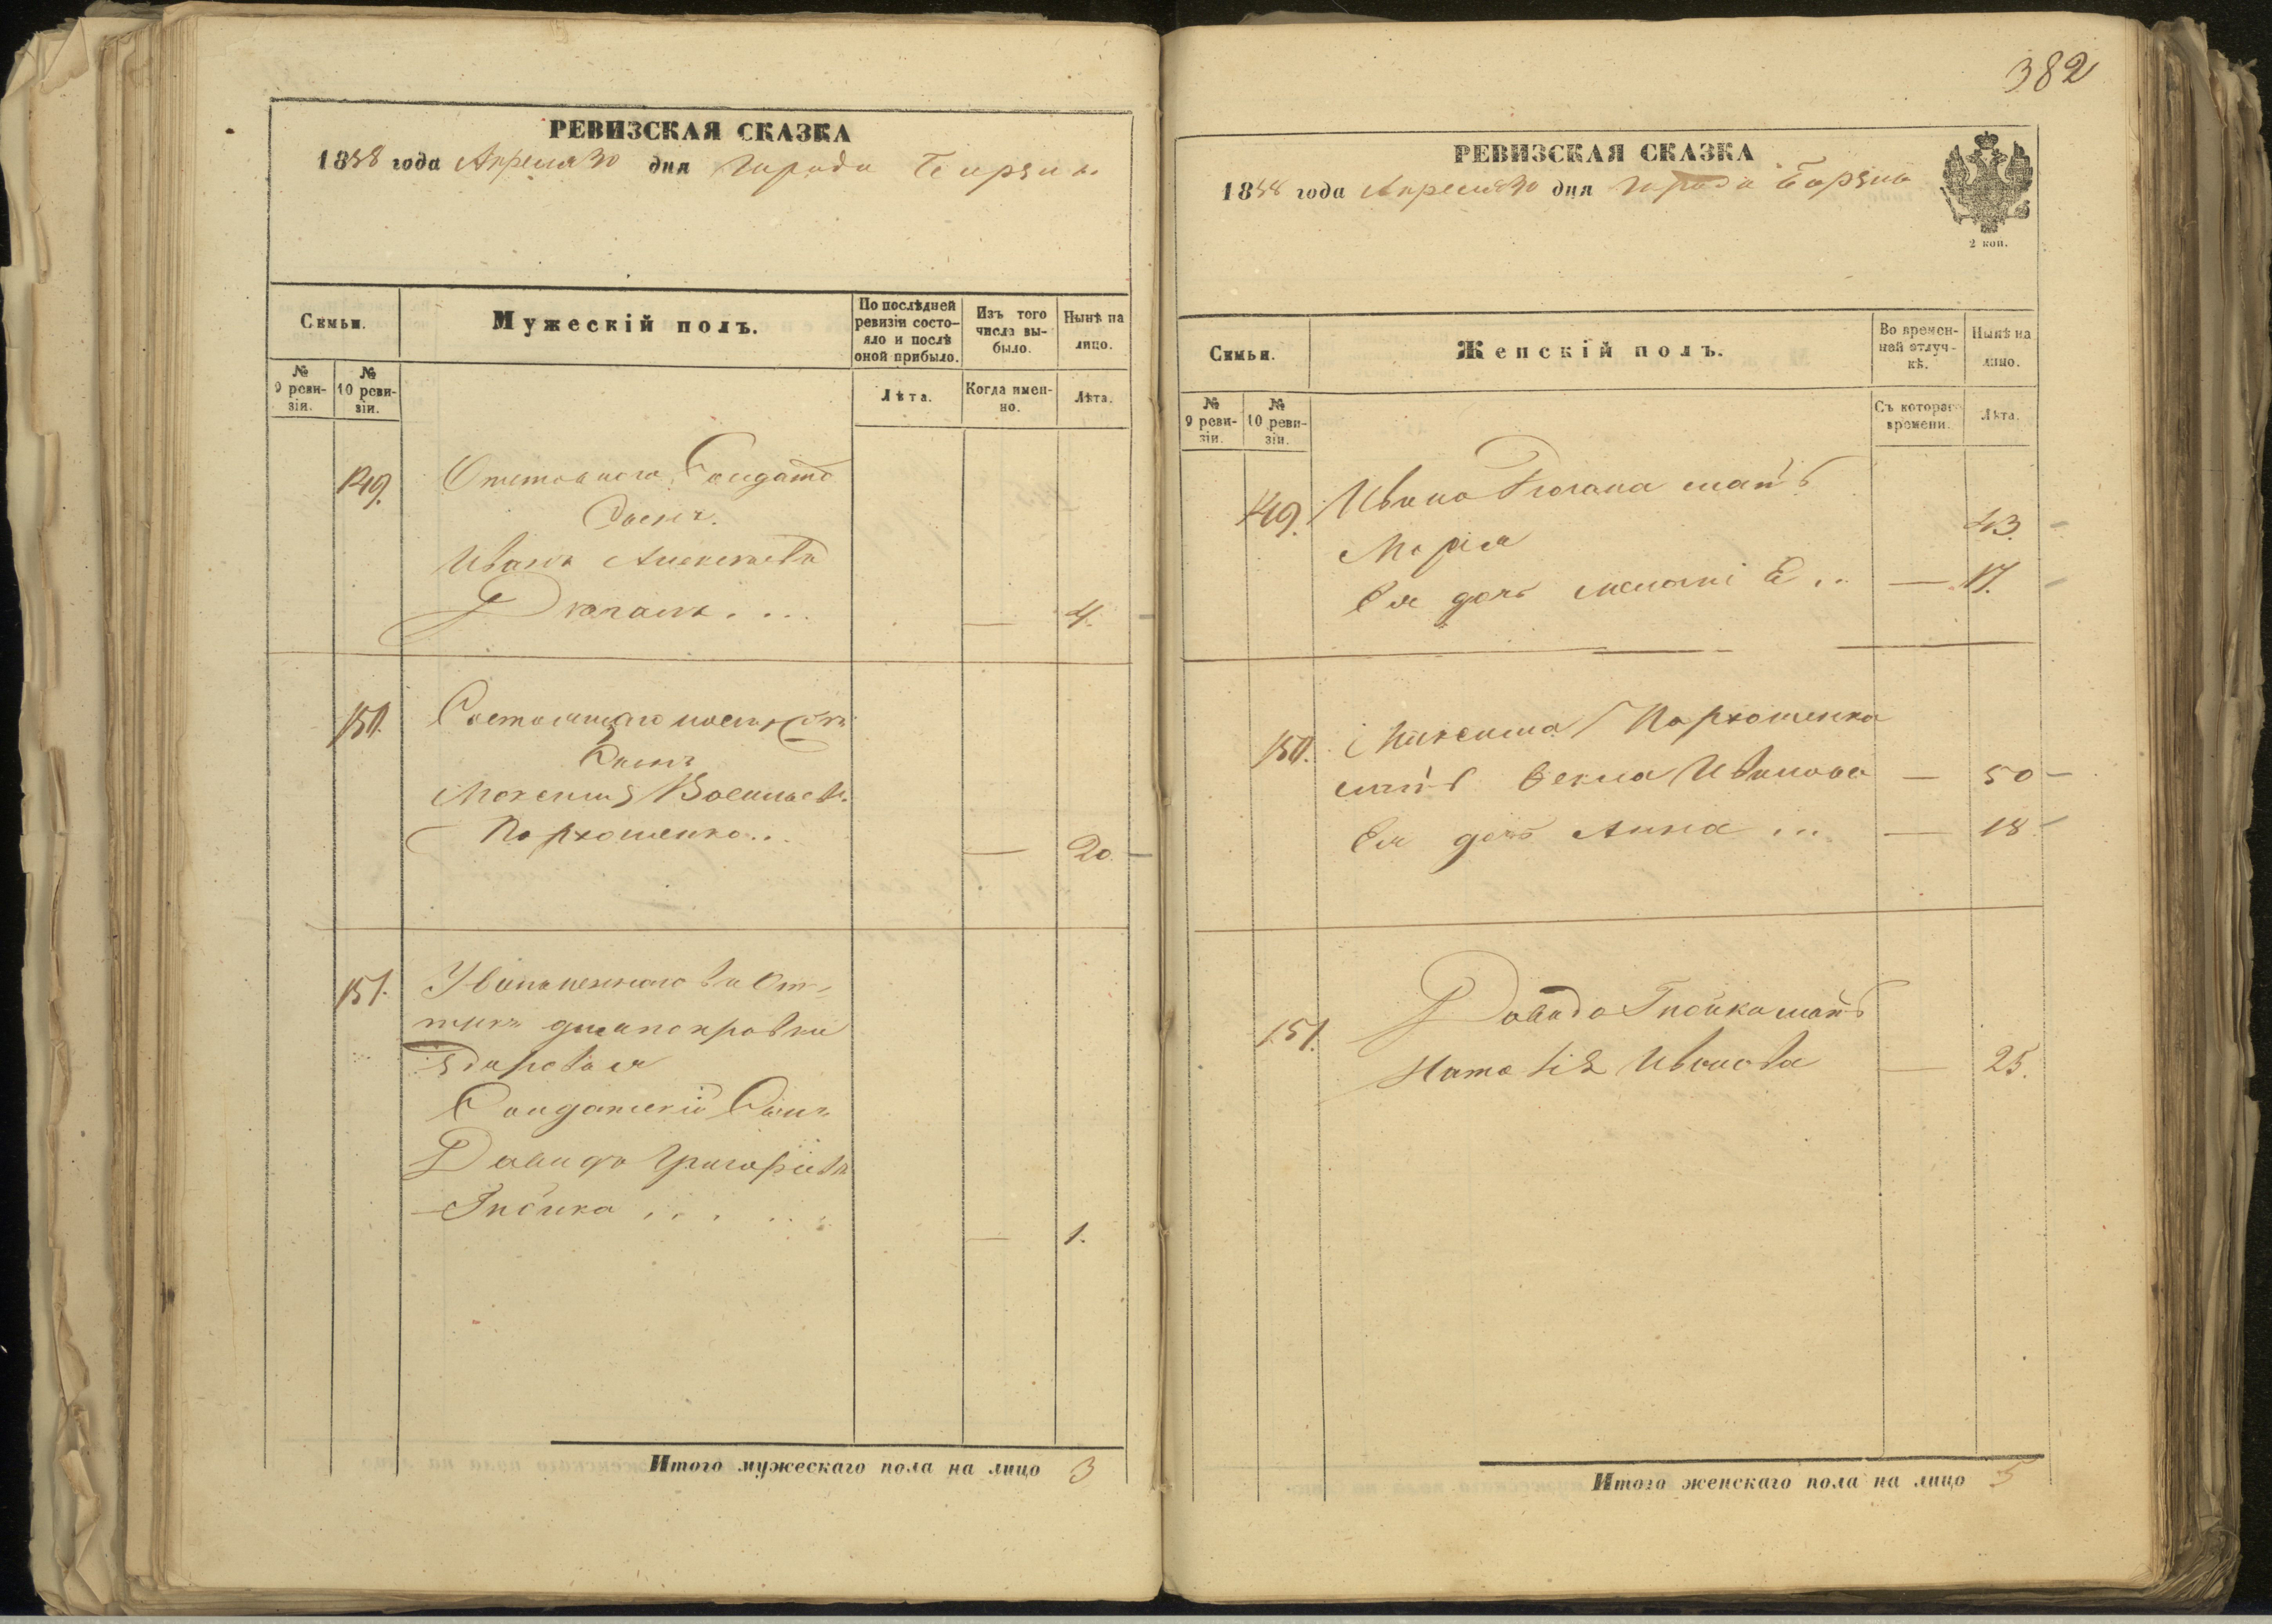 РЕВИЗСКАЯ СКАЗКА
1858 года Апреля 30 дня Города Борзны
Семьи.
Мужескій полъ.
По послѣдней ревизіи состояло и послѣ оной прибыло.
Изъ того числа выбыло.
Нынѣ на лицо.
№ 9 ревизіи.
№ 10 ревизіи.
Лѣта.
Когда именно.
Лѣта.
149. Отставнаго Солдата
Сынъ.
Иванъ Алексѣевъ
Дюганъ . . . — 4.
150.
Сынъ
Максимъ Васильевъ
Пархоменко . . . — 20.
151. Уволеннаго въ От-
пускъ для поправки
Здоровья
Солдатскій Сынъ
Давидъ Григорьевъ
Гнойка . . . . . — 1.
Итого мужескаго пола на лицо 3
382
РЕВИЗСКАЯ СКАЗКА
1858 года Апреля 30 дня Города Борзны
2 коп.
Семьи.
Женскій полъ.
Во временной отлучкѣ.
Нынѣ на лицо.
№ 9 ревизіи.
№ 10 ревизіи.
Съ котораго времени.
Лѣта.
149. Ивана Дюгана мать
Марія 43.
Ея дочь Меланія . . — 17.
150. Максима Пархоменка
мать Векла Иванова — 50
Ея дочь Анна . . . — 18
151. Давида Гнойка мать
Наталія Иванова — 25.
Итого женскаго пола на лицо 5